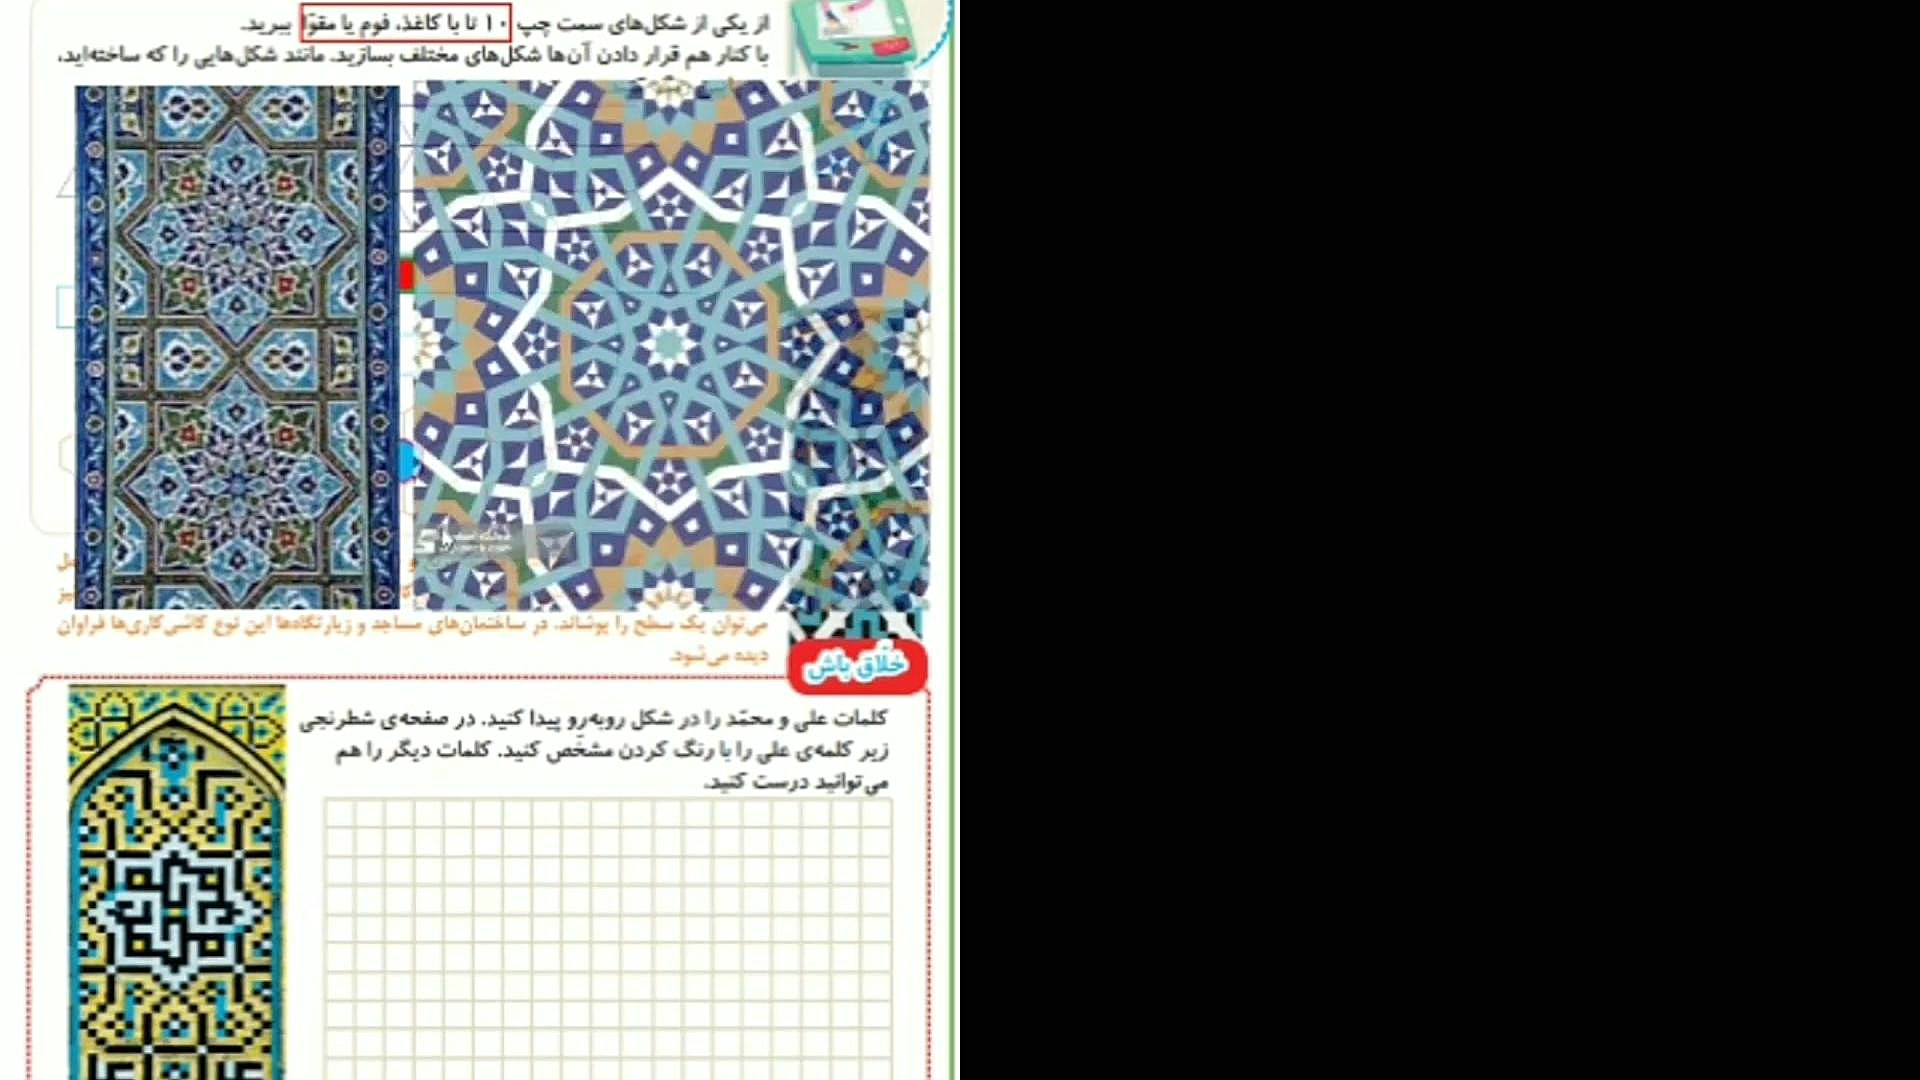 از یکی از شکل‌های سمت چپ ۱۰ تا با کاغذ، فوم یا مقوّا ببرید.
با کنار هم قرار دادن آن‌ها شکل‌های مختلف بسازید. مانند شکل‌هایی را که ساخته‌اید،
می‌توان یک سطح را پوشاند. در ساختمان‌های مساجد و زیارتگاه‌ها این نوع کاشی‌کاری‌ها فراوان
دیده می‌شود.
خلّاق باش
کلمات علی و محمّد را در شکل روبه‌رو پیدا کنید. در صفحه‌ی شطرنجی
زیر کلمه‌ی علی را با رنگ کردن مشخّص کنید. کلمات دیگر را هم
می‌توانید درست کنید.